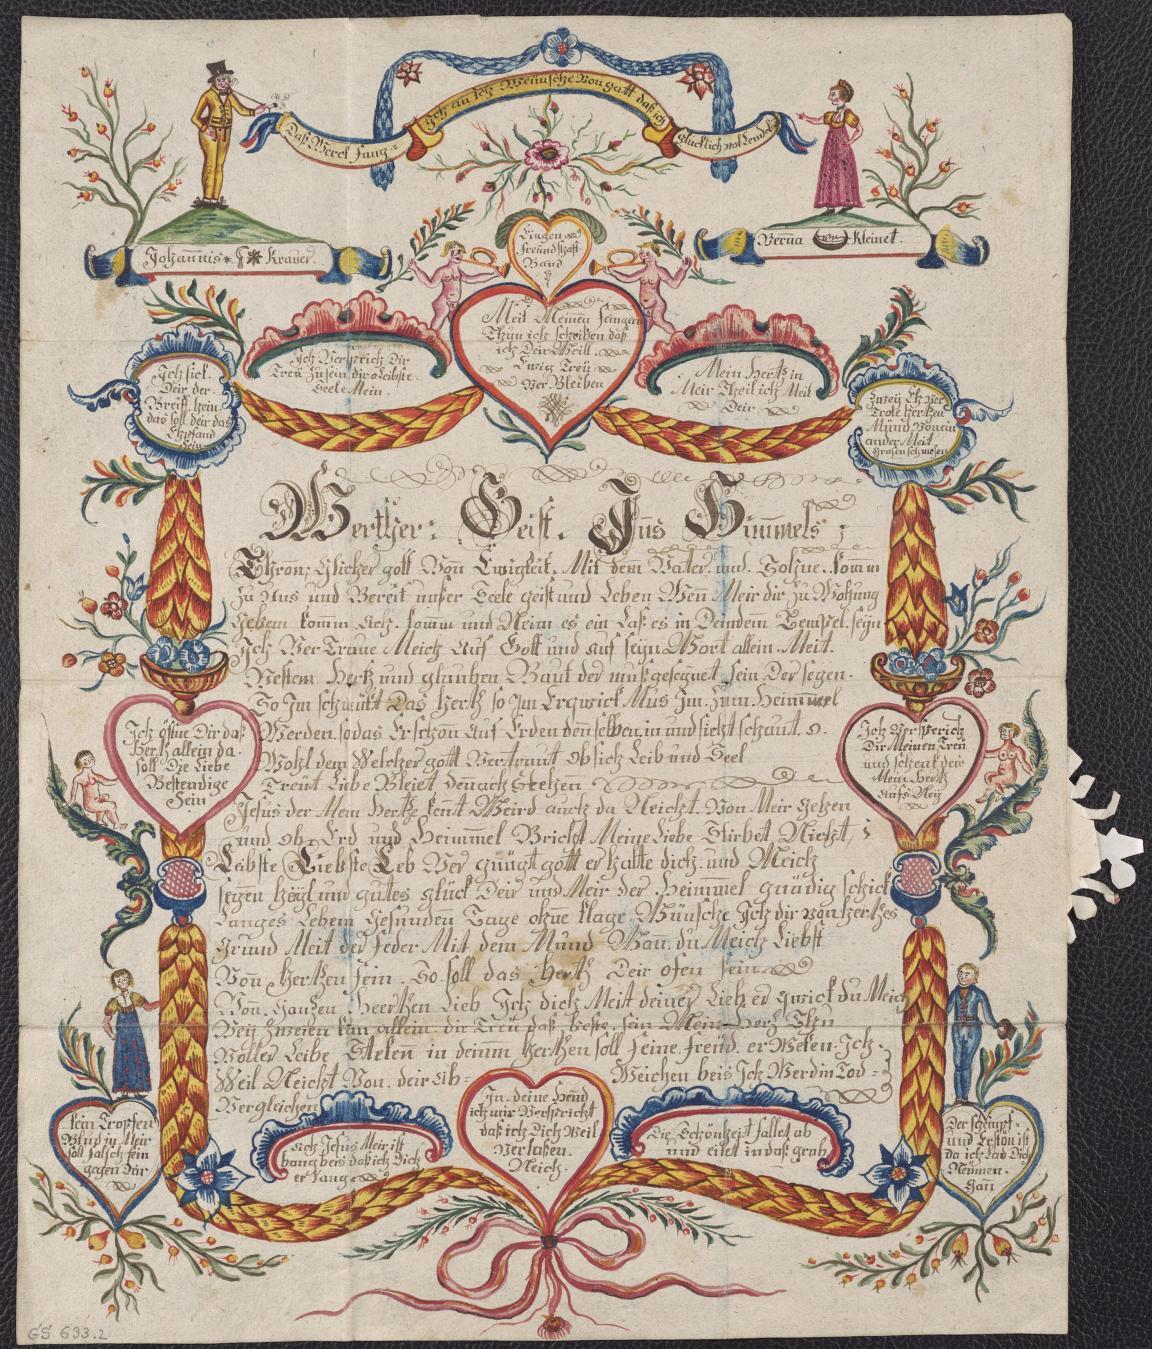 Ich an ietz Weünsche Von gott daß ich
Daß Werck fang-
Glücklich vol Lende
Johannis * F * Kraüer.
Verena von Kleinet.
Eingen
Freundschaft
Band
Meit Meinen Fingern
Thun ich schreiben daß
ich Deir Weill
Ewig Treü
Ver Bleiben
Ich Versprich Dir
Treü zu sein dir o Leibste
Seele Mein.
Mein Hertz in
Meir Theil ich Meit
Deir
Ich sict.
Deir der
Breiff. hein
das soll deir das
Ehpfand
Sein
Trote Hertzen
Mund Von ein
ander Meit
Grosen schmertzen
Werther: Geist. Ins Himmels:
Thron: Glicher gott Von Ewigkeit. Mit dem Vater. und. Sohne. komm
Zu Uns und Bereit unser Seele geist und Leben Wen Meir dir zu Wohung
Gebem komm Ach. komm und Neim es ein Las es in Deindem Tempel. seyn
Ich Ver Traue Meich auf Gott und auf seyn Wort allein. Meit.
Vestem Hertz und glauben Baut der muß gesegnet sein Der segen.
So Im schmückt Das Hertz so Im Erqwick Mus Im. Zum. Heimmel
Werden. so das Er schon Auf Erden den selben. in und sicht schaut. o.
Wohl dem Welcher gott Vertraut Ob sich Leib und Seel
Trent Liebe Bleiet dennach Stehen
Jesus der Mein Hertze kent Weird auch da Neicht. Von Meir Gehen
und ob. Erd und Heimmel Bricht Meine Liebe Stirbet Nicht,
Leibste Liebste Leb Ver gnügt gott er halte dich. und Meich
segen Heyl und gutes glück Deir und Meir der Heimmel gnädig schick
Langes Leben Gesunden Tage ohne klage. Wünsche Ich dir von Hertzes
Grund Meit der Feder Mit dem Mund Wan. du Meich Liebst
Von Hertzen sein. So soll das Hertz Deir ofen sein
Von. Ganzen Heertzen Lieb Ich dich Meit deiner Lieb er qwick du Meich
Bey zweien kan allein. die Treü daß beste. sein Mein Hertz Thu
Voller Leibe Steken in deinm Hertzen soll seine freud. er Weken. Ich.
Weil Neicht Von. deir ab- Weichen beis Ich Werd im Tod-
Vergleichen
Ich öfne Dir daß
Hertz allein da.
soll Die Liebe
Bestendige
Sein
Ich Versperich
Dir Meinen Treü
und schenk deir
Mein Hertz
aufs Neü
kein Tropfen
Blud in Meir
soll falsch sein
gegen Dir
sich Jesus Meir ist
bang beis daß ich Dich
er Lang
In. deine Hend
ich mir Verspricht
daß ich Dich Weil
Verlaßen.
Neich.
Die Schönheit fallet ab
und eilet in daß grab
Der schimpf.
und Erston ist
da ich. Lad Dich
Nemmen.
Gan
GS 633.2